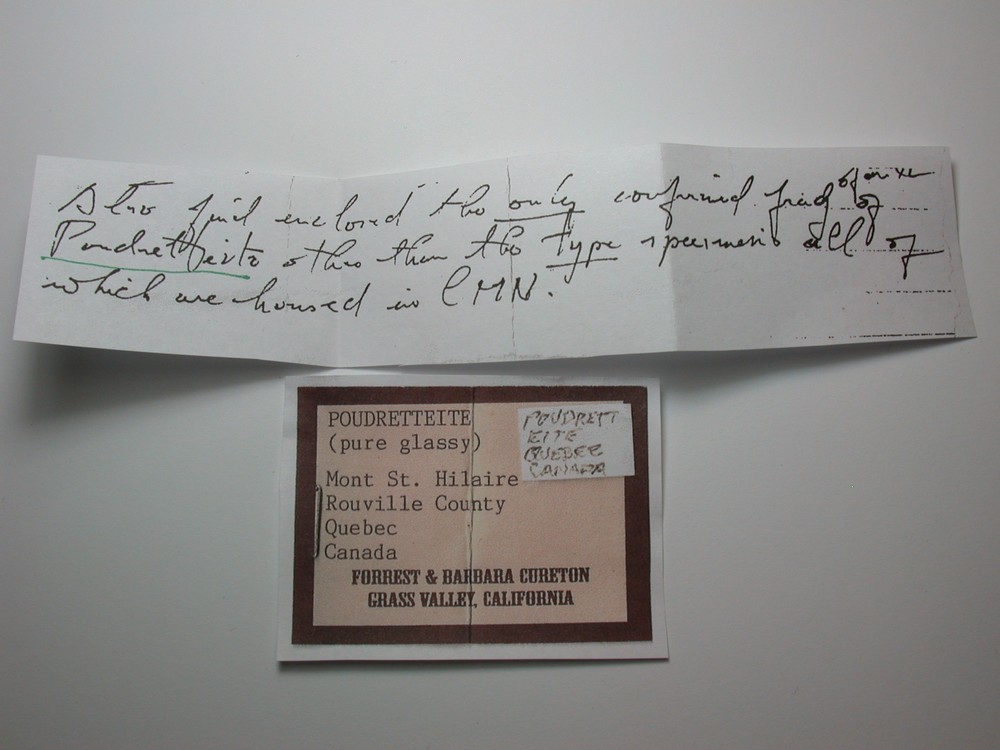 Also find enclosed the only confirmed frag of
Poudretteite other than the type specimens all of
which are housed in CMN.
POUDRETTEITE
(pure glassy)
Mont St. Hilaire
Rouville County
Quebec
Canada
FORREST & BARBARA CURETON
GRASS VALLEY, CALIFORNIA
POUDRETT
EITE
QUEBEC
CANADA